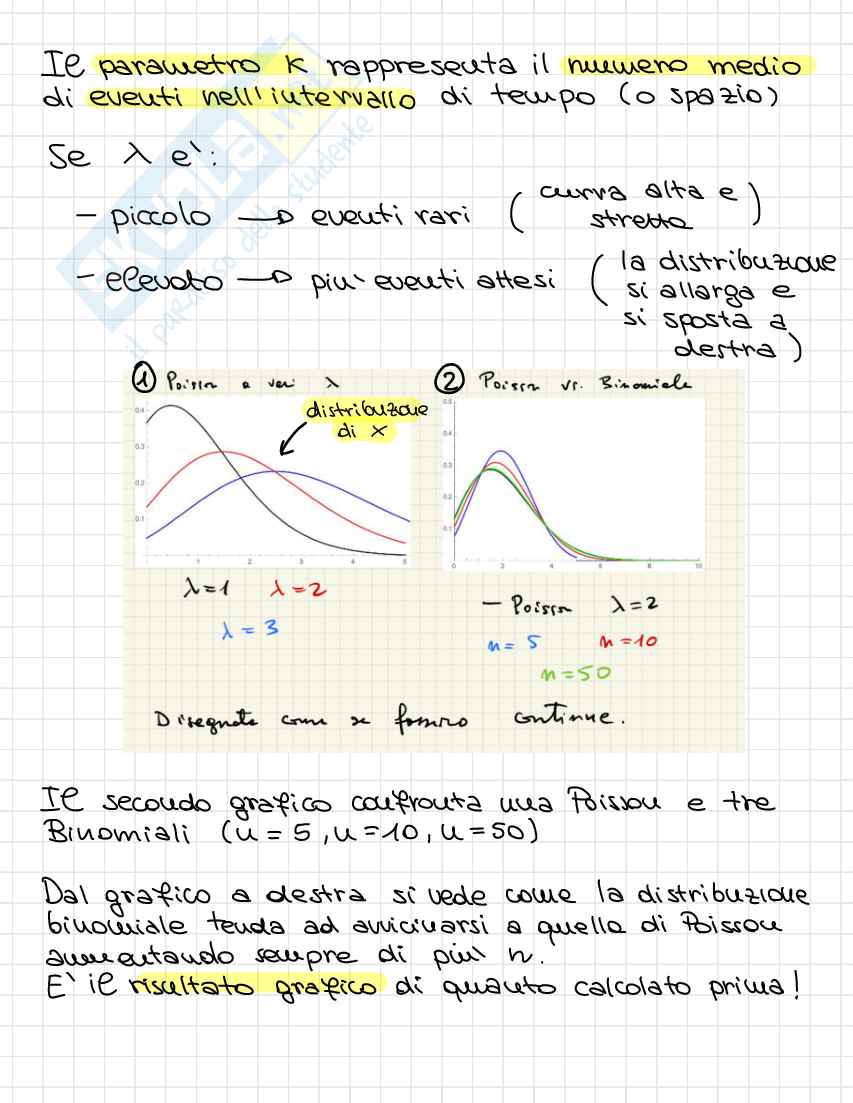 Il parametro k rappresenta il numero medio
di eventi nell'intervallo di tempo (o spazio)
Se λ e':
- piccolo → eventi rari (curva alta e
stretta)
- elevato → piu' eventi attesi (la distribuzione
si allarga e
si sposta a
destra)
① Poisson a vari λ
② Poisson vs. Binomiale
distribuzione
di x
0.4
0.3
0.2
0.1
1 2 3 4 5
0.5
0.4
0.3
0.2
0.1
0 2 4 6 8 10
λ=1 λ=2
λ=3
— Poisson λ=2
n=5 n=10
n=50
Disegnate come se fossero continue.
Il secondo grafico confronta una Poisson e tre
Binomiali (n=5, n=10, n=50)
Dal grafico a destra si vede come la distribuzione
binomiale tenda ad avvicinarsi a quella di Poisson
aumentando sempre di piu' n.
E' il risultato grafico di quanto calcolato prima!
SKUOLA.net
il paradiso dello studente